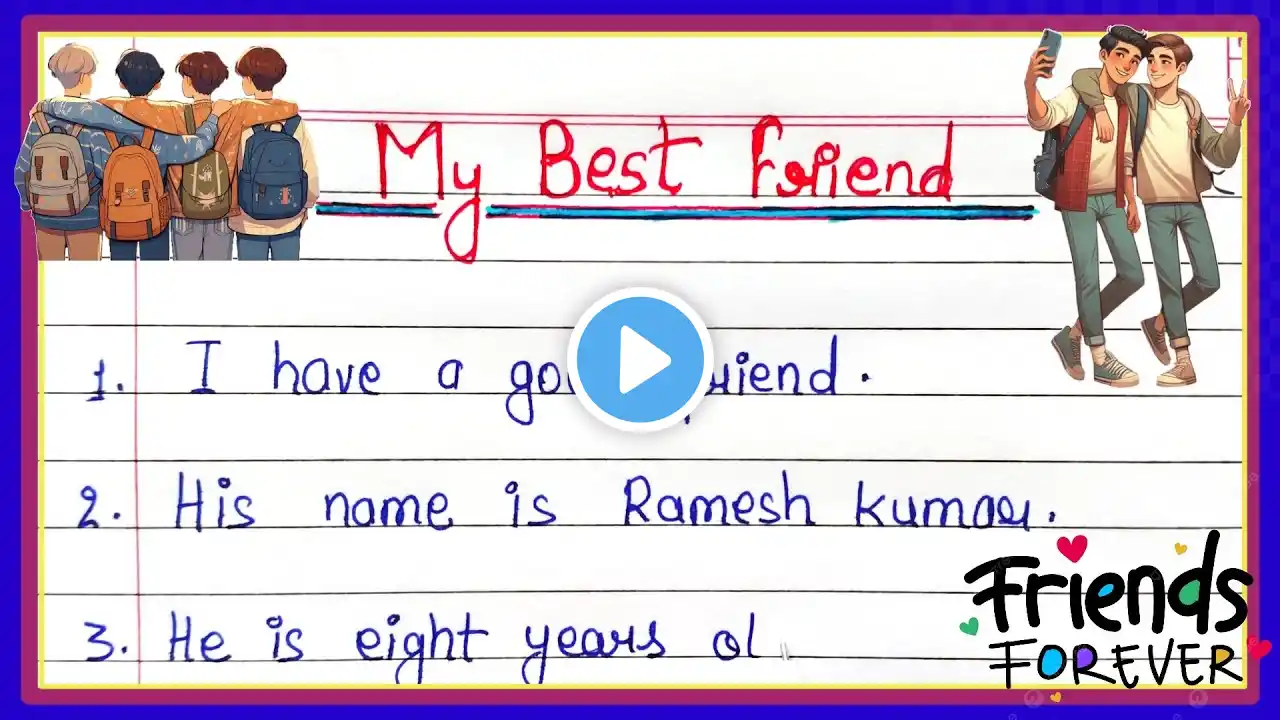 My Best Friend
1. I have a friend.
2. His name is Ramesh Kumar.
3. He is eight years ol
Friends
FOREVER